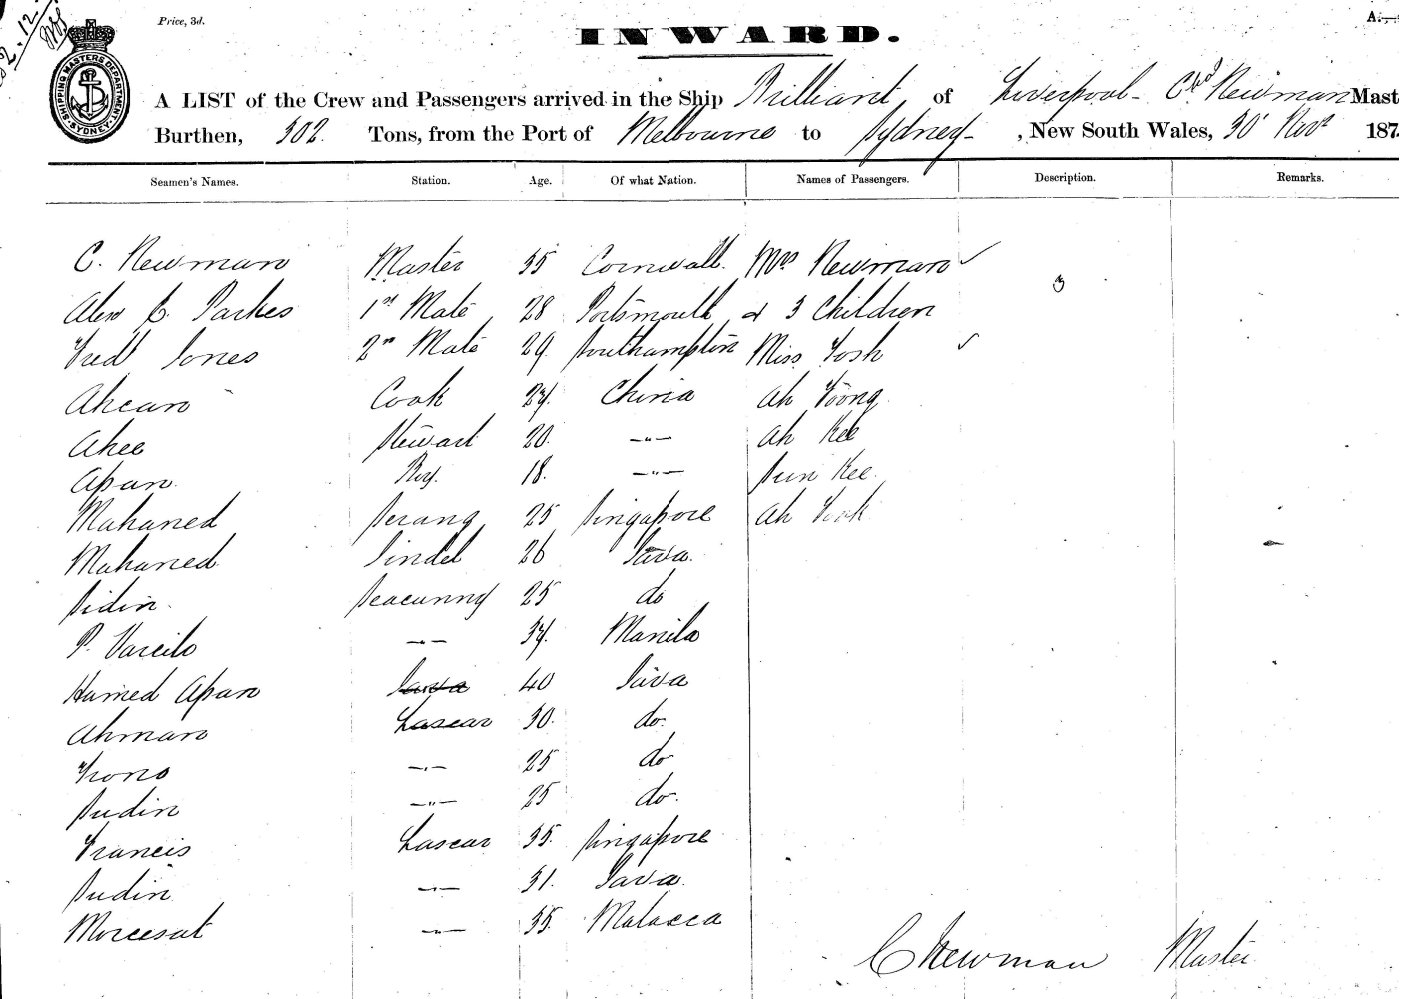 2.12.
Price, 3d.
A.—
SHIPPING MASTERS DEPARTMENT
SYDNEY
INWARD.
A LIST of the Crew and Passengers arrived in the Ship Brilliant, of Liverpool - Chas Newman Mast
Burthen, 302. Tons, from the Port of Melbourne to Sydney - , New South Wales, 30 Novr 187
Seamen's Names. Station. Age. Of what Nation. Names of Passengers. Description. Remarks.
C. Newman Master 35 Cornwall. Mrs Newman ✓
Alex C. Parkes 1st Mate 28 Portsmouth & 3 Children 3
Fredk Jones 2nd Mate 29 Southampton Miss Tosh ✓
Ahcan Cook 24. China Ah Foong
Ahee Steward 20. —"— Ah Kee
Apan. Boy. 18. —"— Sun Kee
Mahaned Serang 25 Singapore Ah
Mahaned Tindel 26 Java.
Sidin. Seacunny 25 do
P. —"— 34. Manila
Hamed Apan Java 40 Java
Ahman Lascar 30. do.
Trono —"— 25 do
Sudin —"— 25 do.
Francis Lascar 35. Singapore
Sudin —"— 31. Java.
—"— 35. Malacca
C Newman Master